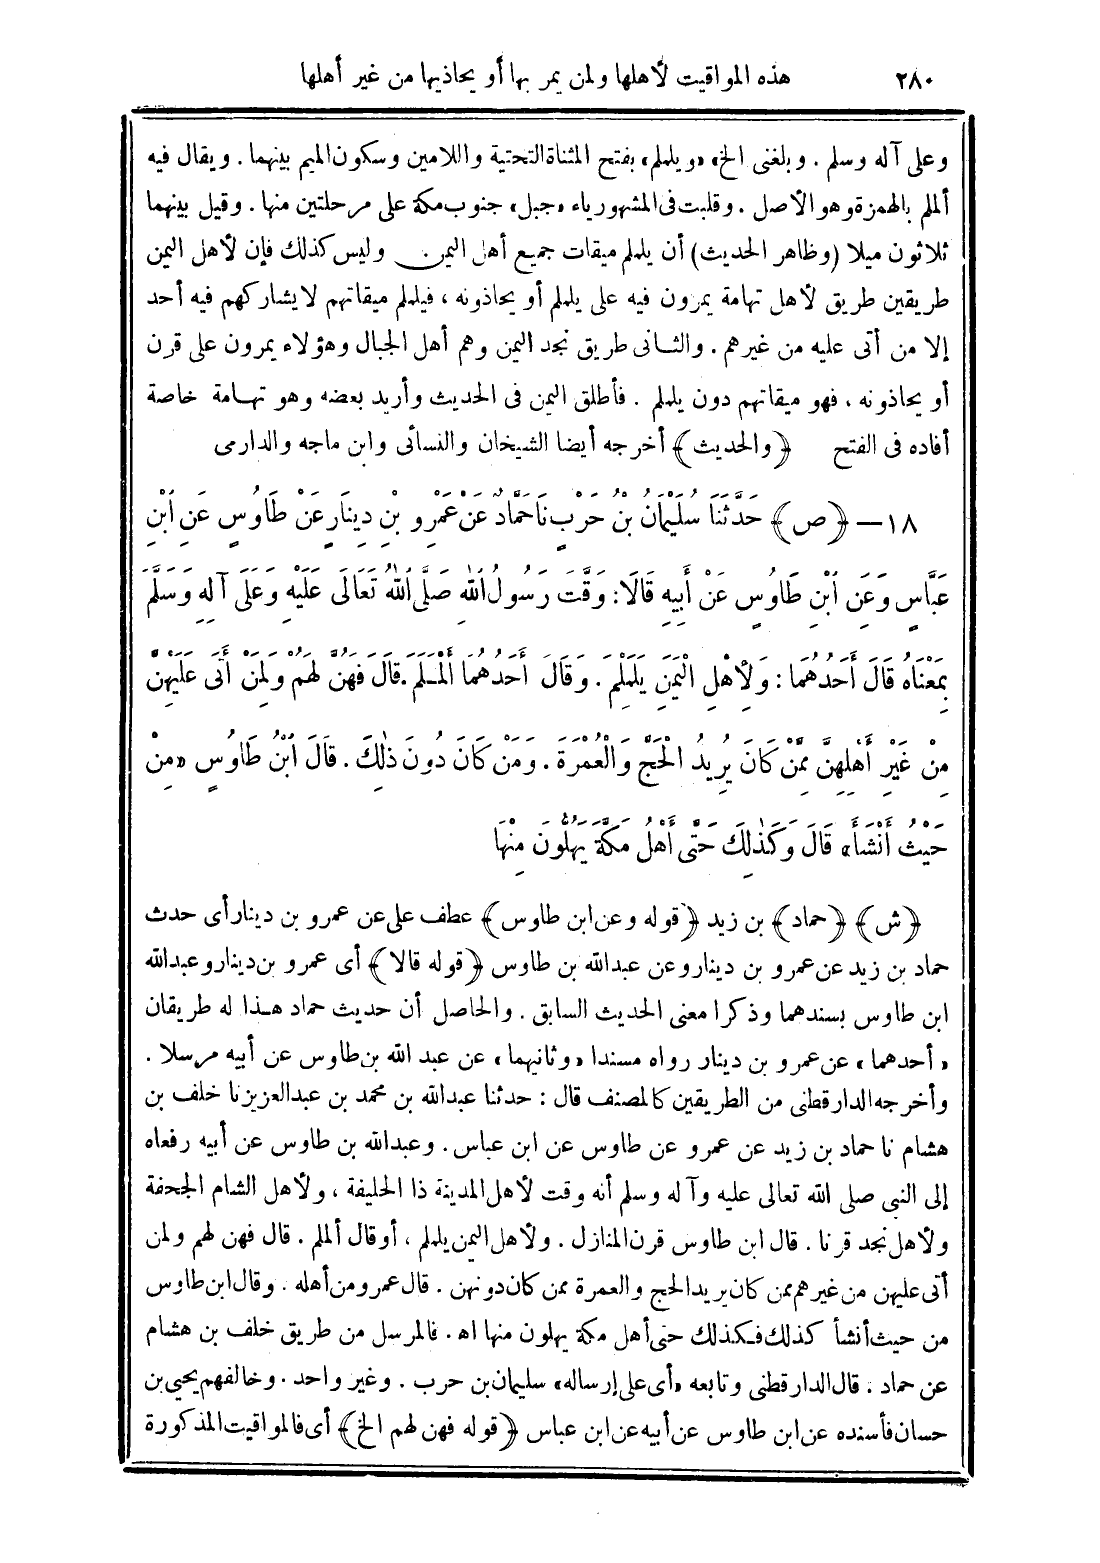 ٢٨٠ هذه المواقيت لأهلها ولمن يمر بها أو يحاذيها من غير أهلها
وعلى آله وسلم . وبلغنى الخ» «ويلملم» بفتح المثناة التحتية واللامين وسكون الميم بينهما . ويقال فيه
ألملم بالهمزة وهو الأصل . وقلبت فى المشهور ياء «جبل» جنوب مكة على مرحلتين منها . وقيل بينهما
ثلاثون ميلا (وظاهر الحديث) أن يلملم ميقات جميع أهل اليمن . وليس كذلك فإن لأهل اليمن
طريقين طريق لأهل تهامة يمرون فيه على يلملم أو يحاذونه ، فيلملم ميقاتهم لا يشاركهم فيه أحد
إلا من أتى عليه من غيرهم . والثانى طريق نجد اليمن وهم أهل الجبال وهؤلاء يمرون على قرن
أو يحاذونه ، فهو ميقاتهم دون يلملم . فأطلق اليمن فى الحديث وأريد بعضه وهو تهامة خاصة
أفاده فى الفتح ﴿والحديث﴾ أخرجه أيضا الشيخان والنسائى وابن ماجه والدارمى
١٨ — ﴿ص﴾ حَدَّثَنَا سُلَيْمَانُ بْنُ حَرْبٍ نَا حَمَّادٌ عَنْ عَمْرِو بْنِ دِينَارٍ عَنْ طَاوُسٍ عَنِ ابْنِ
عَبَّاسٍ وَعَنِ ابْنِ طَاوُسٍ عَنْ أَبِيهِ قَالَا : وَقَّتَ رَسُولُ اللهِ صَلَّى اللهُ تَعَالَى عَلَيْهِ وَعَلَى آلِهِ وَسَلَّمَ
بِمَعْنَاهُ قَالَ أَحَدُهُمَا : وَلِأَهْلِ الْيَمَنِ يَلَمْلَمَ . وَقَالَ أَحَدُهُمَا أَلَمْلَمَ . قَالَ فَهُنَّ لَهُمْ وَلِمَنْ أَتَى عَلَيْهِنَّ
مِنْ غَيْرِ أَهْلِهِنَّ مِمَّنْ كَانَ يُرِيدُ الْحَجَّ وَالْعُمْرَةَ . وَمَنْ كَانَ دُونَ ذٰلِكَ . قَالَ ابْنُ طَاوُسٍ «مِنْ
حَيْثُ أَنْشَأَ» قَالَ وَكَذٰلِكَ حَتَّى أَهْلُ مَكَّةَ يُهِلُّونَ مِنْهَا
﴿ش﴾ ﴿حماد﴾ بن زيد ﴿قوله وعن ابن طاوس﴾ عطف على عن عمرو بن دينار أى حدث
حماد بن زيد عن عمرو بن دينار وعن عبدالله بن طاوس ﴿قوله قالا﴾ أى عمرو بن دينار وعبدالله
ابن طاوس بسندهما وذكرا معنى الحديث السابق . والحاصل أن حديث حماد هذا له طريقان
«أحدهما» عن عمرو بن دينار رواه مسندا «وثانيهما» عن عبد الله بن طاوس عن أبيه مرسلا .
وأخرجه الدارقطنى من الطريقين كالمصنف قال : حدثنا عبدالله بن محمد بن عبدالعزيز نا خلف بن
هشام نا حماد بن زيد عن عمرو عن طاوس عن ابن عباس . وعبدالله بن طاوس عن أبيه رفعاه
إلى النبى صلى الله تعالى عليه وآله وسلم أنه وقت لأهل المدينة ذا الحليفة ، ولأهل الشام الجحفة
ولأهل نجد قرنا . قال ابن طاوس قرن المنازل . ولأهل اليمن يلملم ، أو قال ألملم . قال فهن لهم ولمن
أتى عليهن من غيرهم ممن كان يريد الحج والعمرة ممن كان دونهن . قال عمرو من أهله . وقال ابن طاوس
من حيث أنشأ كذلك فكذلك حتى أهل مكة يهلون منها اه . فالمرسل من طريق خلف بن هشام
عن حماد . قال الدارقطنى وتابعه «أى على إرساله» سليمان بن حرب . وغير واحد . وخالفهم يحيى بن
حسان فأسنده عن ابن طاوس عن أبيه عن ابن عباس ﴿قوله فهن لهم الخ﴾ أى فالمواقيت المذكورة